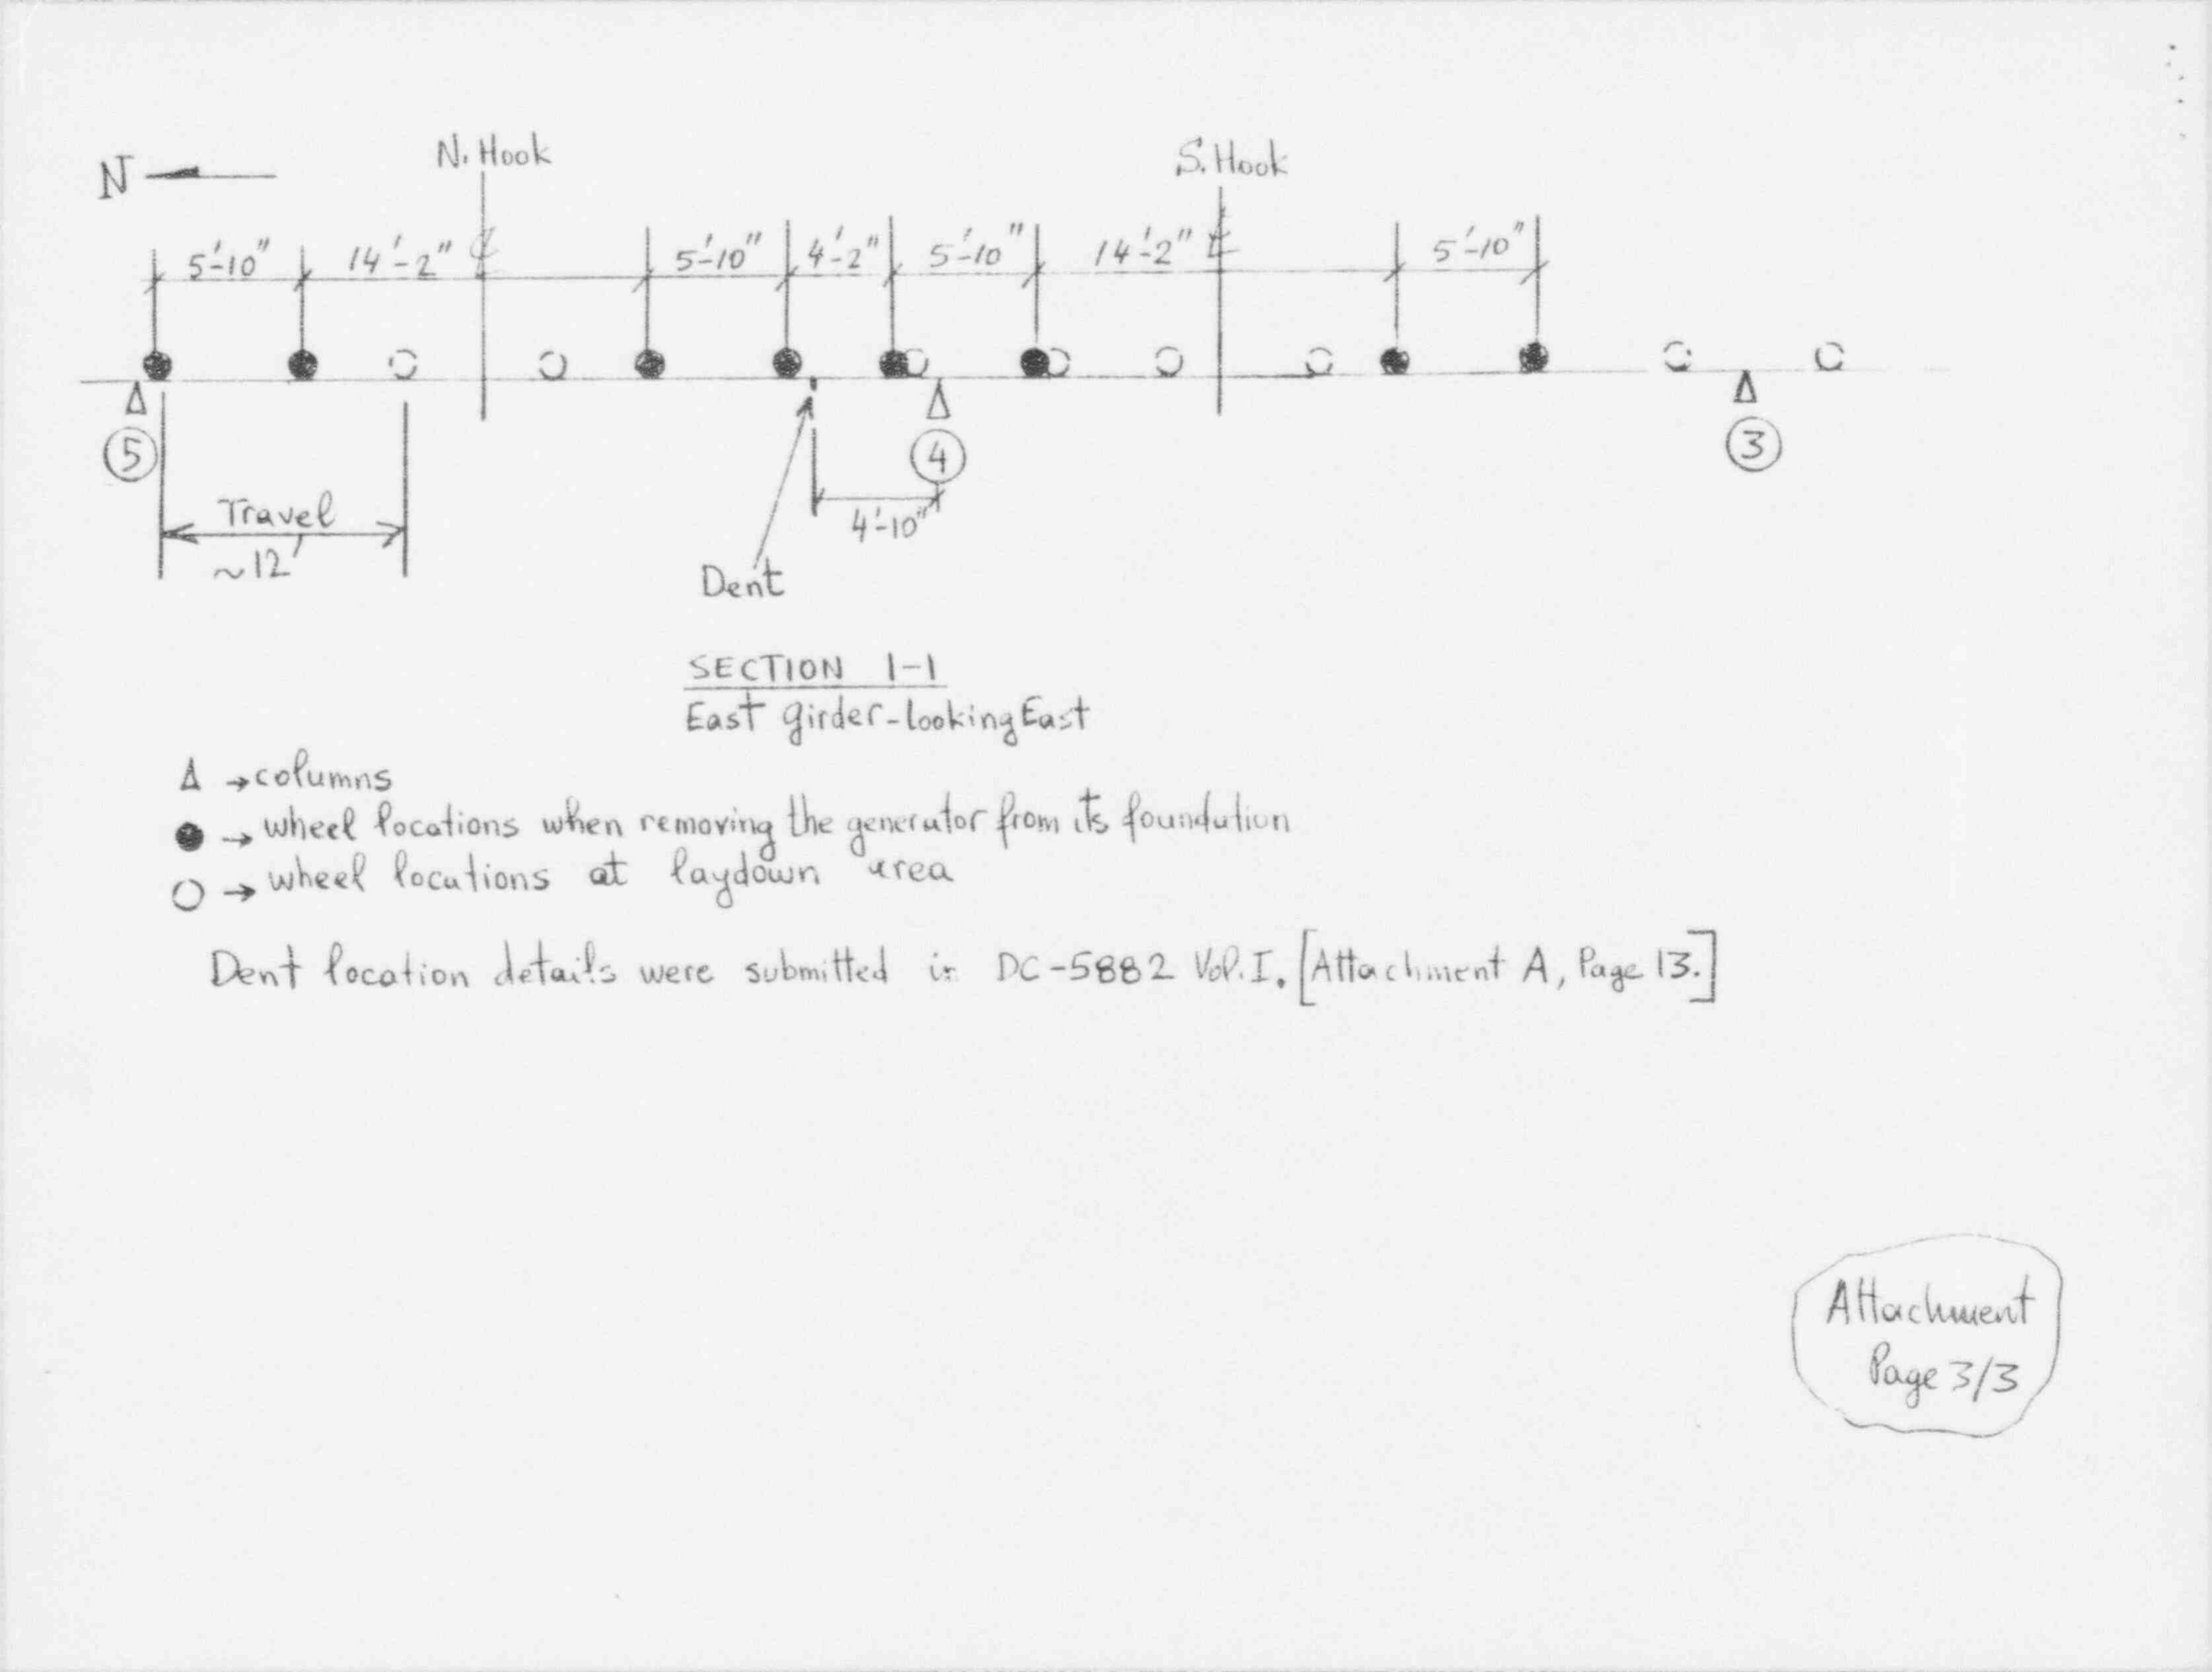 N. Hook
S. Hook
N
5'-10" 14'-2" ℄ 5'-10" 4'-2" 5'-10" 14'-2" ℄ 5'-10"
5 4 3
Travel
~12'
4'-10"
Dent
SECTION 1-1
East girder-looking East
Δ → columns
● → wheel locations when removing the generator from its foundation
○ → wheel locations at laydown area
Dent location details were submitted in DC-5882 Vol. I. [Attachment A, Page 13.]
Attachment
Page 3/3